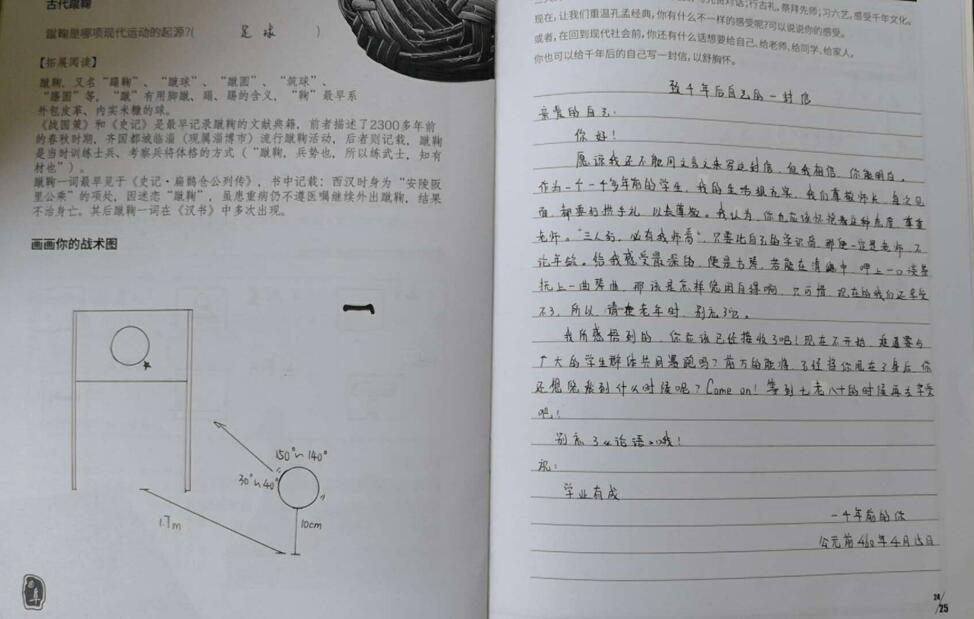 古代蹴鞠
蹴鞠是哪项现代运动的起源?( 足球 )
【拓展阅读】
蹴鞠，又名“蹋鞠”、“蹴球”、“蹴圆”、“筑球”、
“踢圆”等，“蹴”有用脚蹴、蹋、踢的含义，“鞠”最早系
外包皮革、内实米糠的球。
《战国策》和《史记》是最早记录蹴鞠的文献典籍，前者描述了2300多年前
的春秋时期，齐国都城临淄（现属淄博市）流行蹴鞠活动，后者则记载，蹴鞠
是当时训练士兵、考察兵将体格的方式（“蹴鞠，兵势也，所以练武士，知有
材也”）。
蹴鞠一词最早见于《史记·扁鹊仓公列传》，书中记载：西汉时身为“安陵阪
里公乘”的项处，因迷恋“蹴鞠”，虽患重病仍不遵医嘱继续外出蹴鞠，结果
不治身亡。其后蹴鞠一词在《汉书》中多次出现。
画画你的战术图
一
150°~140°
30°~40°
10cm
1.7m
对话；行古礼，祭拜先师；习六艺，感受千年文化。
现在，让我们重温孔孟经典，你有什么不一样的感受呢?可以说说你的感受。
或者，在回到现代社会前，你还有什么话想要给自己、给老师、给同学、给家人。
你也可以给千年后的自己写一封信，以舒胸怀。
致千年后自己的一封信
亲爱的自己：
你好！
愿谅我还不能用文言文来写这封信，但我相信，你能明白。
作为一个一千多年前的学生，我的生活很充实，我们尊敬师长，每次见
面，都要行拱手礼，以表尊敬。我认为，你也应该怀揣着这种态度，尊重
老师。“三人行，必有我师焉”，只要比自己的学识高，那便一定是老师，不
论年龄。给我感受最深的，便是古琴，若能在清幽中，呷上一口淡茶
抚上一曲琴曲，那该是怎样悠闲自得啊，只可惜，现在的我们还享受
不了，所以，请老年时，别忘了它。
我所感悟到的，你应该已经接收了吧！现在不开始，难道要与
广大的学生群体共同墨迹吗？前方的能将，已经将你甩在了身后，你
还想拖拉到什么时候呢？Come on！等到七老八十的时候再去享受
吧！
别忘了《论语》哦！
祝：
学业有成
一千年前的你
公元前460年4月15日
24
25